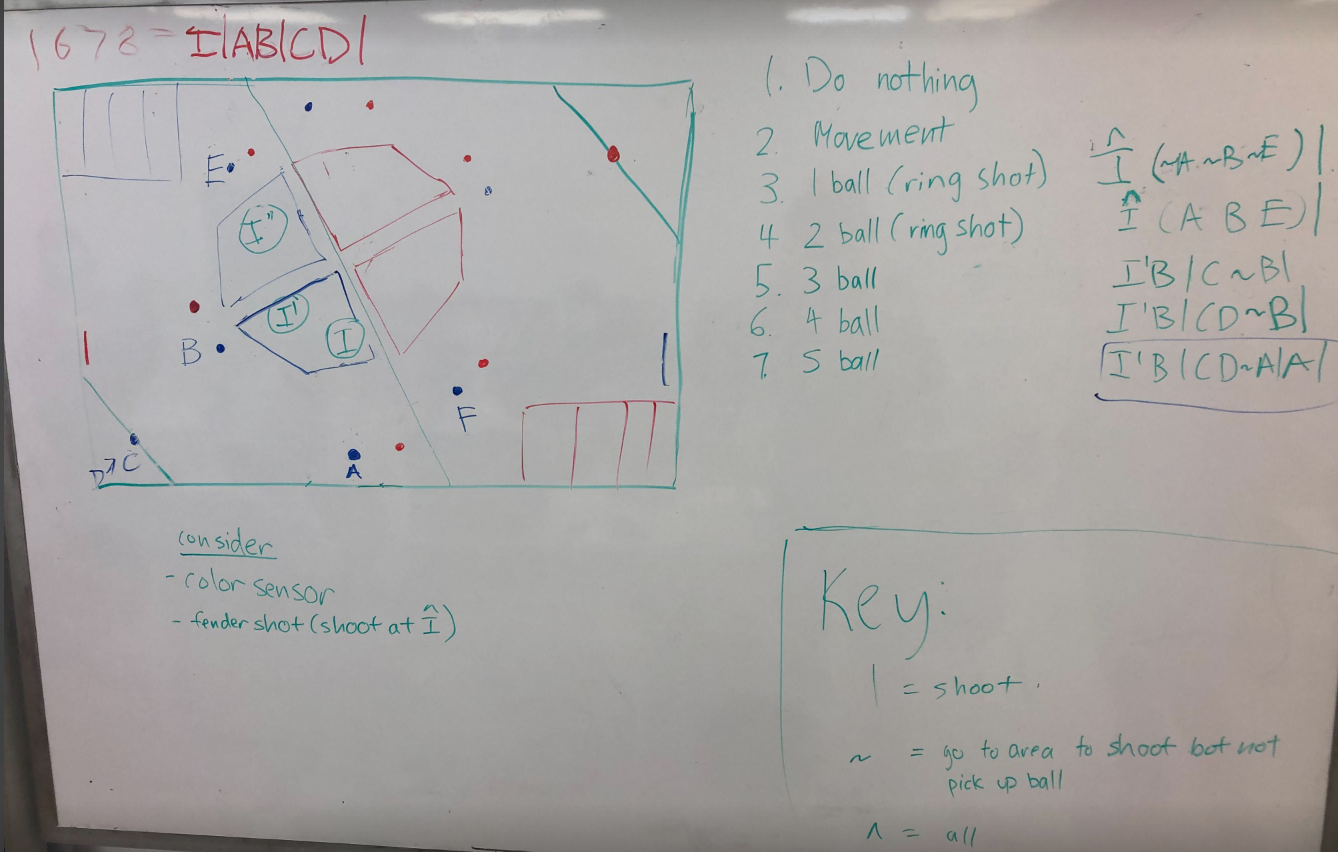 1678 = I|AB|CD|
E
I"
I'
I
B
F
C
D
A
1. Do nothing
2. Movement
3. 1 ball (ring shot)
4 2 ball (ring shot)
5. 3 ball
6. 4 ball
7. 5 ball
Î (~A ~B ~E) |
Î (A B E) |
I'B | C ~B |
I'B | CD ~B |
I'B | CD ~A | A |
consider
- color sensor
- fender shot (shoot at Î)
Key:
| = shoot.
~ = go to area to shoot bot not
pick up ball
^ = all